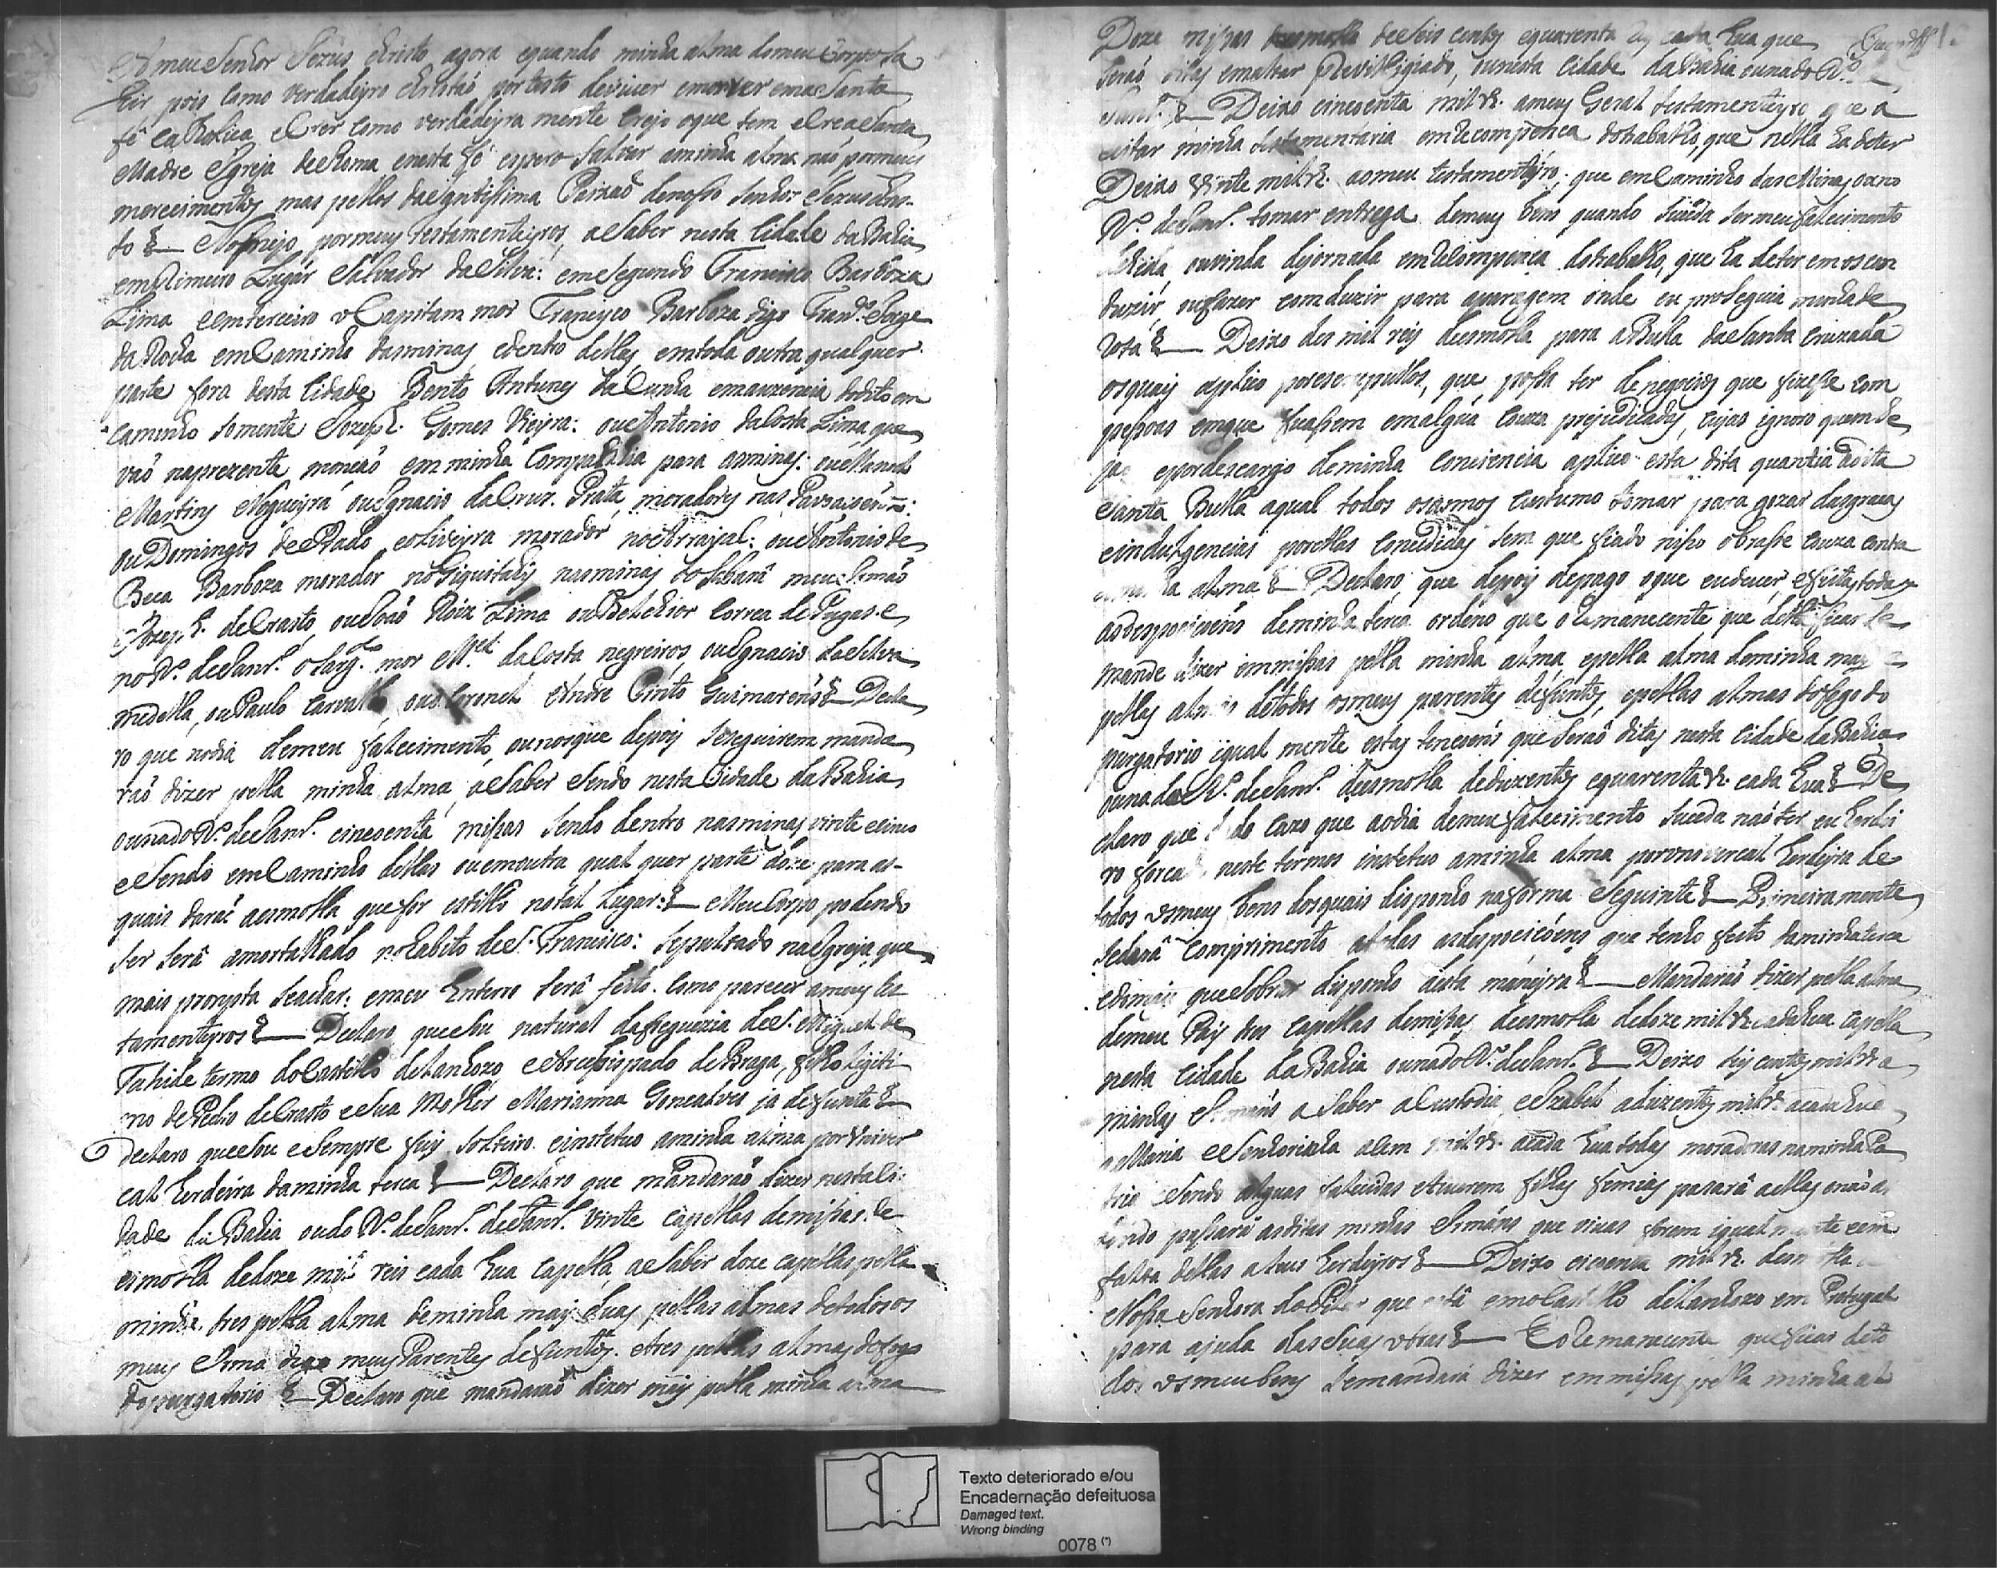 A meu Senhor Jezus christo agora equando minha alma domeu Corpo sa
hir pois como verdadeyro christaõ portesto deviver emorrer emaSanta
fê caTholica, eCrer como verdadeyra mente Creyo oque tem eCrea Santa
Madre Igreja deRoma enesta fê espero Salvar aminha alma naõ pormeus
merecimentos mas pellos daSantissima Paixaõ denosso senhor Jezus chris-
to &— Nomeyo, pormeus testamenteyros, aSaber nesta Cidade daBahia
emPrimeiro Lugár Salvador daSilva: emSegundo Francisco Barboza
Lima eemterceiro oCapitam mor Francisco Barboza digo Fran.co Jorge
daRocha emCaminho dasminas edentro dellas emtoda outra qualquer
parte fora desta Cidade Bento Antunes daCunha emauzencia dodito em
caminho somente Jozeph Gomes Vieyra: ouAntonio daCosta Lima que
vaõ naprezente monçaõ emminha Companhia para asminas: ouManoel
Martins Nogueyra ouIgnacio daCruz Prata, moradores nas
ouDomingos dePrado eoliveyra morador noArrayal: ouAntonio de
Beca Barboza morador no nasminas doSabarâ meu Irmaõ
Jozeph deCrasto, ouJoaõ Roiz Lima ouBelchior Correa de
noR.o deJan.ro oSarg.to mor M.el daCosta negreiros, ouIgnacio daSilva
medella, ouPaulo Carvalho ouoCoronel Andre Pinto Guimarens &— Decla
ro que nodia demeu falecimento, ounosque depois seseguirem manda
raõ dizer pella minha alma, aSaber Sendo nesta Cidade daBahia
ounadoR.o deJan.ro cincoenta missas sendo dentro nasminas vinte ecinco
eSendo emCaminho dellas ouemoutra qual quer parte doze para as-
quais daraõ aesmolla quefor estillo notal Lugar: &— Meu Corpo podendo
ser será amortalhado nohabito deS. Francisco: sepultado naIgreja que
mais prompta seachar: emeu Enterro será feito como parecer ameus tes
tamenteyros &— Declaro queSou natural dafreguezia deS. Miguel de
Tahide termo doCastello deLanhozo eArcebispado deBraga, filho Legiti
mo dePedro deCrasto eSua Molher Marianna Goncalves ja defunta &
declaro queSou eSempre fuy Solteiro einstetuo aminha alma porvniver
cal herdeira daminha terca &— Declaro que mandaraõ dizer nestaCi
dade da Bahia oudo R.o deJan.ro deJan.ro vinte capellas demissas de
esmolla dedoze mil reis cada hua capella, aSaber doze capellas pella
minha, tres pella alma deminha may, duas pellas almas detodosos
meus Irma digo meus Parentes defuntos, etres pellas almas dofogo
dopurgatorio &— Declaro que mandaraõ dizer mais pella minha alma
Doze missas deesmolla deSeis centos equarenta cada hua que
seraõ ditas emaltar Previlligiado, ounesta Cidade daBahia ounado R.o
&— Deixo cincoenta mil rs. ameus Geral testamenteyro que a
ceitar minha testamentaria emrecompença dotrabalho, que nella hadeter
Deixo vinte mil rs. aomeu testamenteyro, que emCaminho dasMinas ouno
R.o deJan.ro tomar entrega demeus bens quando suceda sermeu falecimento
ouvinda dejornada emrecompença dotrabalho, que ha deter emoscon
duzir, oufazer comduzir para aparagem onde eu proseguia minhade
rota &— Deixo dez mil reis deesmolla para aBulla daSanta Cruzada
osquais aplico poresescrupullos, que possa ter denegocios que fizesse com
pessoas emque ficassem emalgua couza prejudicadas, cujas ignoro quemse
jaõ epordescargo deminha Conciencia aplico esta dita quantia adita
Santa Bulla aqual todos osannos custumo tomar para gozar dasgracas
eindulgencias porellas Concedidas sem que fiado nisso obrasse couza contra
minha alma &— Declaro, que depois depago oque eudever, efeitas todas
asdesposicoẽns deminha terca ordeno que oRemanecente que della ficar se
mande dizer immissas pella minha alma, epella alma deminha may e
pellas almas detodos osmeus parentes defuntos, epellas almas dofogo do
purgatorio igual mente estas tencoẽns que seraõ ditas nesta Cidade daBahia
ounado R.o deJan.ro deesmolla deduzentos equarenta rs. cada hua &— De
claro que dado cazo que aodia demeu falecimento suceda naõ ter eu herdei
ro forcado neste termos instetuo aminha alma porvnivercal herdeyra de
todos osmeus bens dosquais disponho naforma Seguinte &— Primeiramente
sedará Comprimento atodas asdesposicóẽns que tenho feito daminhaterca
edomais queSobrar disponho desta maneyra &— Mandaraõ dizer pella alma
demeu Pay tres capellas demissas deesmolla dedoze mil rs. cadahua capella
nesta cidade daBahia ounadoR.o deJan.ro &— Deixo seis centos mil rs a
minhas Irmáns a Saber aCustodia, eIzabel aduzentos mil rs. acada hua
aMaria eSenhorinha acem mil rs. acada hua todas moradoras naminhaPa
tria eSendo alguas falecidas etiverem filhas femias pasará aellas enaõ as
tendo passará asditas minhas Irmáns que vivas forem igual mente eem
falta dellas aseus herdeyros &— Deixo cincoenta mil rs. deesmolla a
Nossa Senhora doPilar que está emoCastello deLanhozo em Portugal
para ajuda dasSuas obras &— EoRemanecente queficar deto
dos osmeusbens semandará dizer emmissas pella minha al
Texto deteriorado e/ou
Encadernação defeituosa
Damaged text.
Wrong binding
0078 (*)